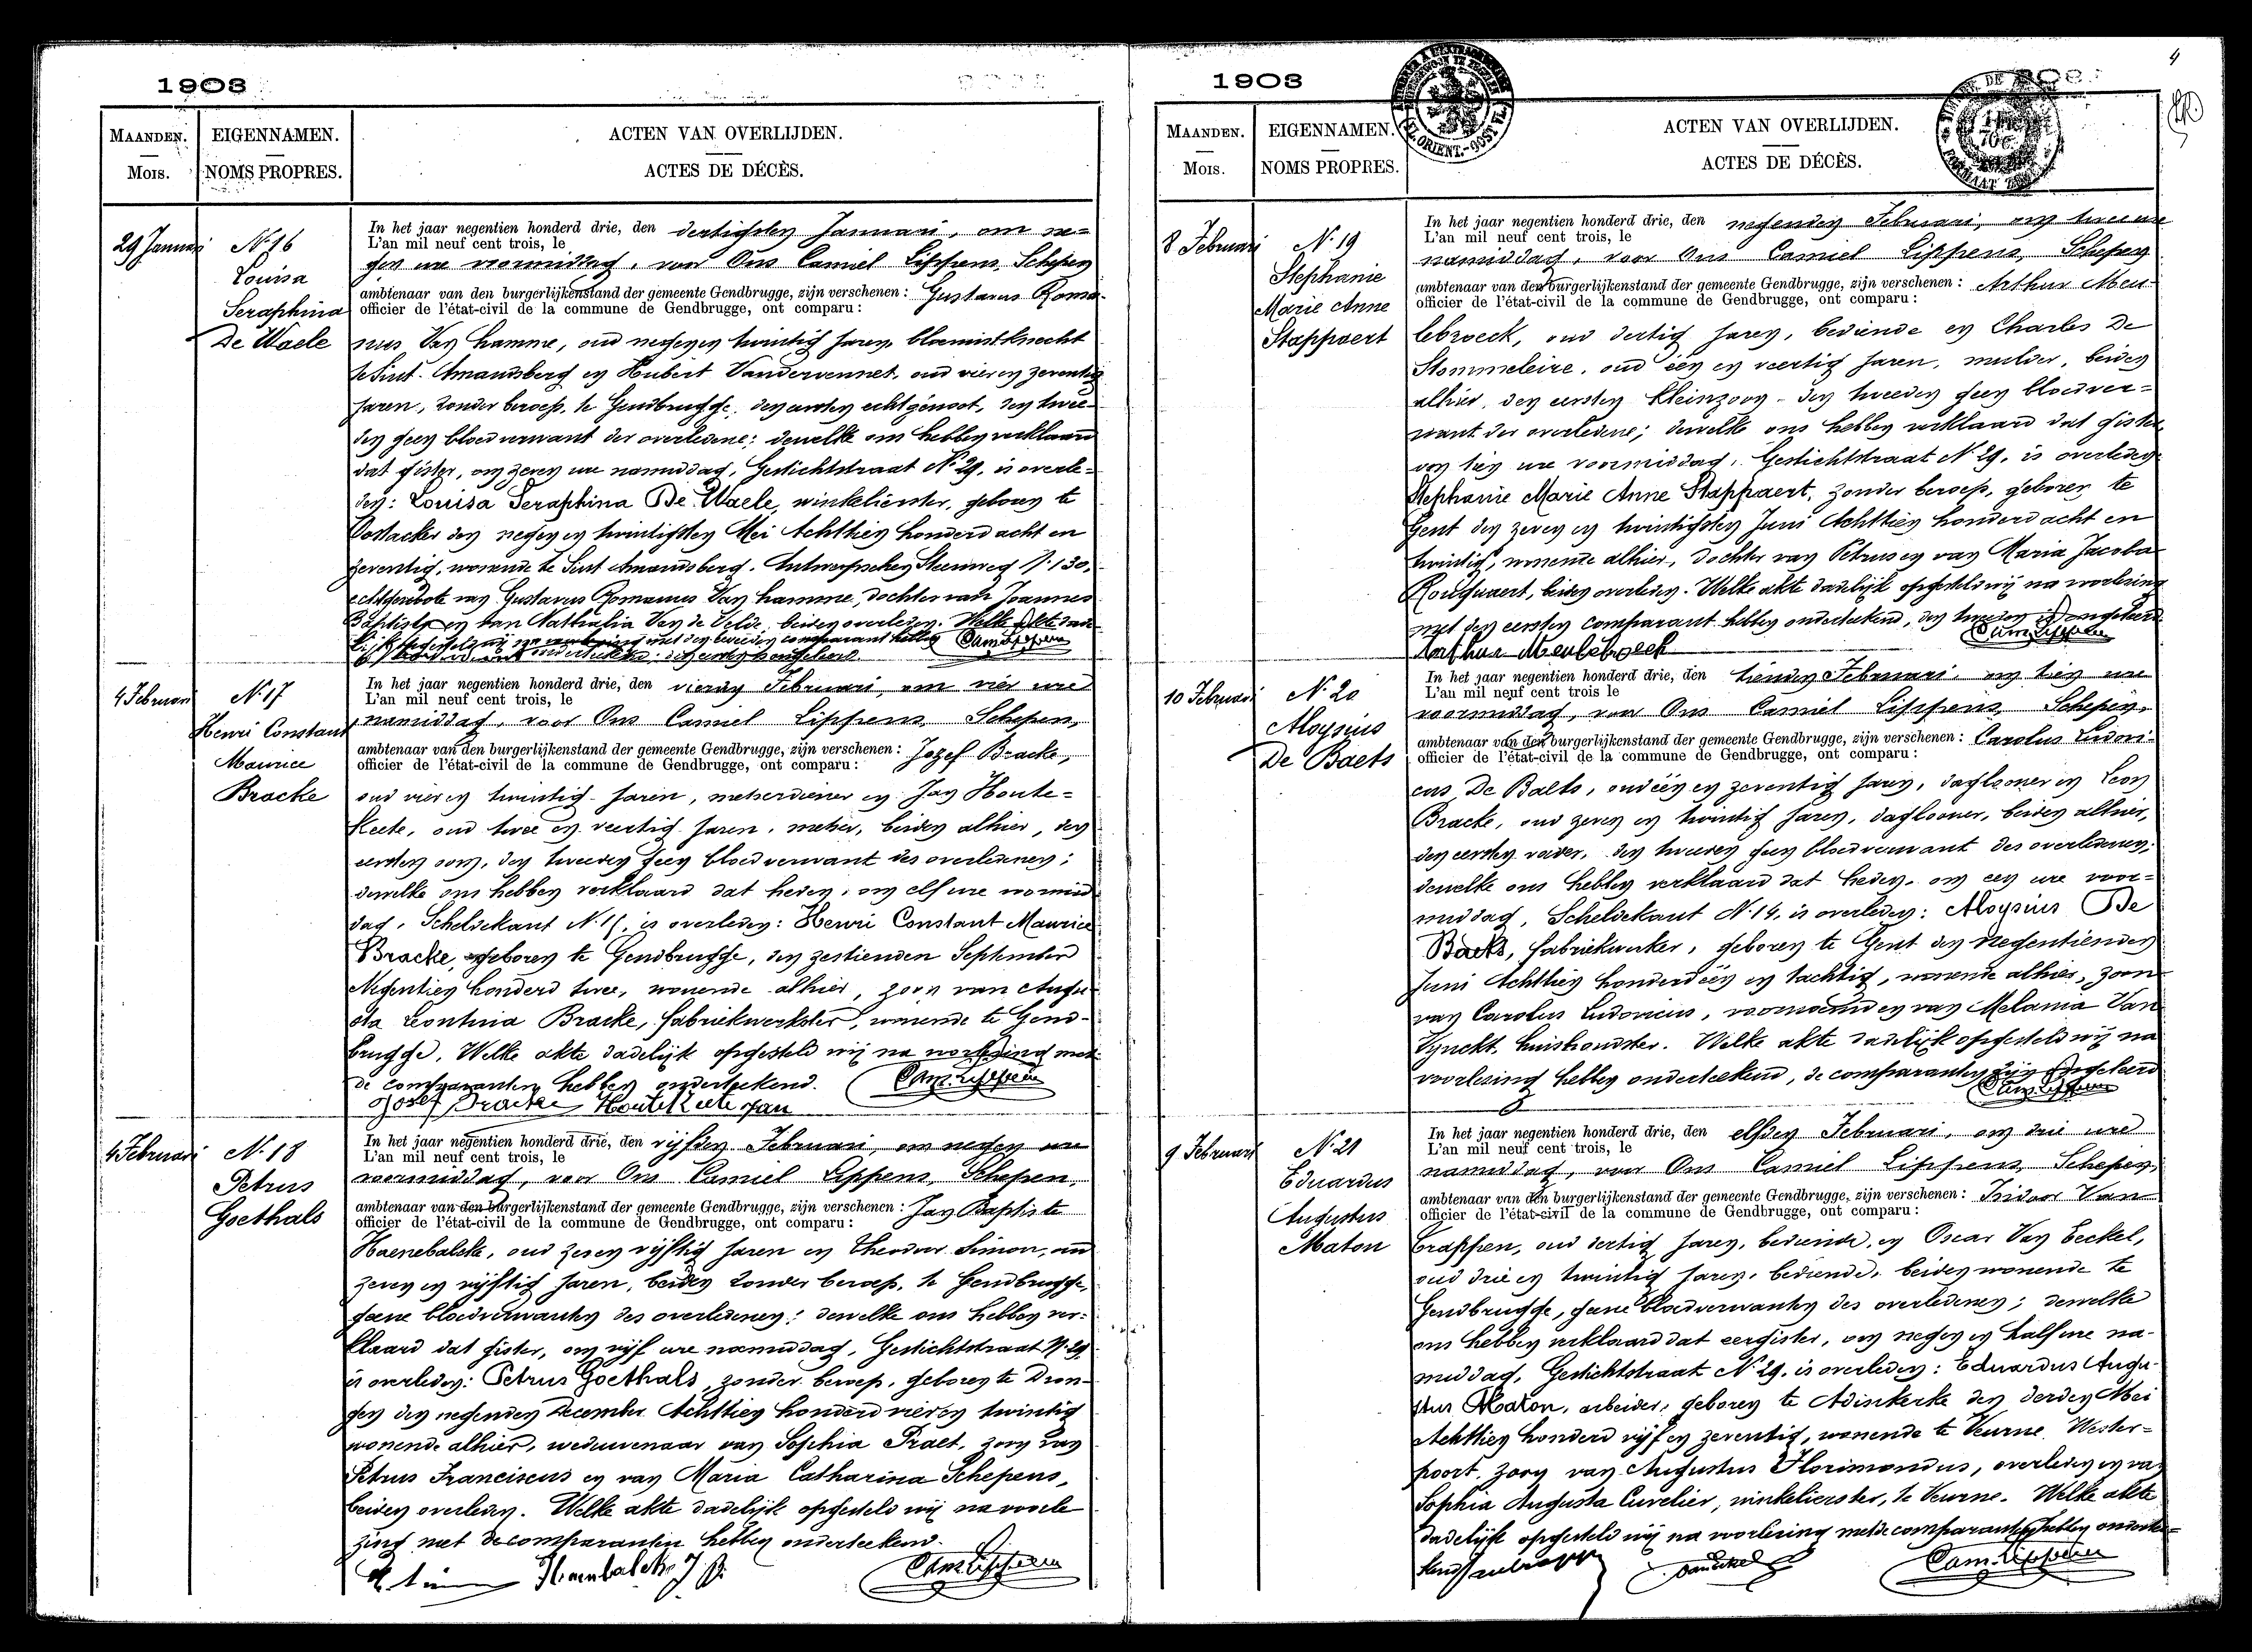 1903
MAANDEN.
Mois.
EIGENNAMEN.
NOMS PROPRES.
ACTEN VAN OVERLIJDEN.
ACTES DE DÉCÈS.
29 Januari
N. 16
Louisa
Seraphina
De Waele
In het jaar negentien honderd drie, den dertigsten Januari, om ne=
L'an mil neuf cent trois, le
gen ure voormiddag, voor Ons Camiel Lippens, Schepen
ambtenaar van den burgerlijkenstand der gemeente Gendbrugge, zijn verschenen: Gustavus Roma-
officier de l'état-civil de la commune de Gendbrugge, ont comparu:
nus Van hamme, oud negen en twintig jaren, bloemistknecht
te Sint-Amandsberg en Hubert Vandervennet, oud vier en zeventig
jaren, zonder beroep, te Gendbrugge, den eersten echtgenoot, den twee-
den geen bloedverwant der overledene; dewelke ons hebben verklaard
dat gister, om zeven ure namiddag, Gestichtstraat N. 29, is overle-
den: Louisa Seraphina De Waele, winkelierster, geboren te
Oostacker den negen en twintigsten Mei Achttien honderd acht en
zeventig, wonende te Sint Amandsberg, Antwerpschen Steenweg N. 130,
echtgenoote van Gustavus Romanus Van hamme, dochter van Joannes
Baptista en van Nathalia Van de Velde, beiden overleden. Welke akte dade-
lijk opgesteld wij na voorlezing met den tweeden comparant hebben
Cam. Lippens
4 Februari
N. 17
Henri Constant
Maurice
Bracke
In het jaar negentien honderd drie, den vierden Februari, om vier ure
L'an mil neuf cent trois, le
namiddag, voor Ons Camiel Lippens, Schepen,
ambtenaar van den burgerlijkenstand der gemeente Gendbrugge, zijn verschenen: Jozef Bracke,
officier de l'état-civil de la commune de Gendbrugge, ont comparu:
oud vier en twintig jaren, metserdiener en Jan Houte=
Keete, oud twee en veertig jaren, metser, beiden alhier, den
eersten oom, den tweeden geen bloedverwant des overledenen;
dewelke ons hebben verklaard dat heden, om elf ure voormid-
dag, Scheldekant is overleden: Henri Constant Maurice
Bracke, geboren te Gendbrugge, den zestienden September
Negentien honderd twee, wonende alhier, zoon van Augu-
sta Leontina Bracke, fabriekwerkster, wonende te Gend-
brugge. Welke akte dadelijk opgesteld wij na voorlezing met
de comparanten hebben onderteekend. Cam. Lippens
Josef Bracke Houtekeete Jan
4 Februari
N. 18
Petrus
Goethals
In het jaar negentien honderd drie, den vijfden Februari, om negen ure
L'an mil neuf cent trois, le
voormiddag, voor Ons Camiel Lippens, Schepen,
ambtenaar van den burgerlijkenstand der gemeente Gendbrugge, zijn verschenen: Jan Baptiste
officier de l'état-civil de la commune de Gendbrugge, ont comparu:
Haenebalcke, oud zeven vijftig jaren en Theodoor Simon, oud
zeven en vijftig jaren, beiden zonder beroep, te Gendbrugge,
geene bloedverwanten des overledenen; dewelke ons hebben ver-
klaard dat gister, om vijf ure namiddag, Gestichtstraat N. 29
is overleden: Petrus Goethals, zonder beroep, geboren te Dron-
gen den negenden December Achttien honderd vier en twintig
wonende alhier, weduwenaar van Sophia Praet, zoon van
Petrus Franciscus en van Maria Catharina Schepens,
beiden overleden. Welke akte dadelijk opgesteld wij na voorle
zing met de comparanten hebben onderteekend.
Haenebalcke J B Cam. Lippens
4
1903
MAANDEN.
Mois.
EIGENNAMEN.
NOMS PROPRES.
ACTEN VAN OVERLIJDEN.
ACTES DE DÉCÈS.
8 Februari
N. 19
Stephanie
Marie Anne
Stappaert
In het jaar negentien honderd drie, den negenden Februari, om twee ure
L'an mil neuf cent trois, le
namiddag, voor Ons Camiel Lippens, Schepen
ambtenaar van den burgerlijkenstand der gemeente Gendbrugge, zijn verschenen: Arthur Meu-
officier de l'état-civil de la commune de Gendbrugge, ont comparu:
lebroeck, oud dertig jaren, bediende en Charles De
Stommeleire, oud één en veertig jaren, mulder, beiden
alhier, den eersten kleinzoon den tweeden geen bloedver=
want der overledene; dewelke ons hebben verklaard dat gister
om tien ure voormiddag, Gestichtstraat N. 29, is overleden
Stephanie Marie Anne Stappaert, zonder beroep, geboren te
Gent den zeven en twintigsten Juni Achttien honderd acht en
twintig, wonende alhier, dochter van Petrus en van Maria Jacoba
beiden overleden. Welke akte dadelijk opgesteld wij na voorlezing
met den eersten comparant hebben onderteekend, den tweeden is ongeleerd
Cam. Lippens
Arthur Meulebroeck
10 Februari
N. 20
Aloysius
De Baets
In het jaar negentien honderd drie, den tienden Februari, om tien ure
L'an mil neuf cent trois le
voormiddag, voor Ons Camiel Lippens, Schepen,
ambtenaar van den burgerlijkenstand der gemeente Gendbrugge, zijn verschenen: Carolus Ludovi-
officier de l'état-civil de la commune de Gendbrugge, ont comparu:
cus De Baets, oud één en zeventig jaren, daglooner en Leon
Bracke, oud zeven en twintig jaren, daglooner, beiden alhier,
den eersten vader, den tweeden geen bloedverwant des overledenen;
dewelke ons hebben verklaard dat heden, om een ure voor=
middag, Scheldekant N. 14, is overleden: Aloysius De
Baets, fabriekwerker, geboren te Gent den negentienden
Juni Achttien honderd één en tachtig, wonende alhier, zoon
van Carolus Ludovicus, voornoemd en van Melania Van
Vynckt, huishoudster. Welke akte dadelijk opgesteld wij na
voorlezing hebben onderteekend, de comparanten zijn ongeleerd
Cam. Lippens
9 Februari
N. 21
Eduardus
Augustus
Maton
In het jaar negentien honderd drie, den elfden Februari, om drie ure
L'an mil neuf cent trois, le
namiddag, voor Ons Camiel Lippens, Schepen,
ambtenaar van den burgerlijkenstand der gemeente Gendbrugge, zijn verschenen: Isidoor Van
officier de l'état-civil de la commune de Gendbrugge, ont comparu:
Crappen, oud dertig jaren, bediende, en Oscar Van Eeckel,
oud drie en twintig jaren, bediende, beiden wonende te
Gendbrugge, geene bloedverwanten des overledenen; dewelke
ons hebben verklaard dat eergister, om negen en half ure na-
middag, Gestichtstraat N. 29, is overleden: Eduardus Augu-
stus Maton, arbeider, geboren te Adinkerke den derden Mei
Achttien honderd vijf en zeventig, wonende te Veurne, Wester=
poort, zoon van Augustus Florimondus, overleden en van
Sophia Augusta Cuvelier, winkelierster, te Veurne. Welke akte
dadelijk opgesteld wij na voorlezing met de comparanten hebben onderte
Cam. Lippens